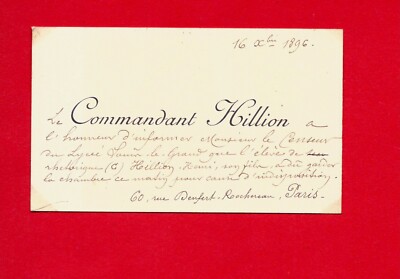 16 Xbre 1896.
Le Commandant Hillion a
l'honneur d'informer Monsieur le Censeur
du Lycée Louis le Grand que l'élève de
rhétorique (C) Hillion, René, son fils, a dû garder
la chambre ce matin pour cause d'indisposition.
60, rue Denfert-Rochereau, Paris-